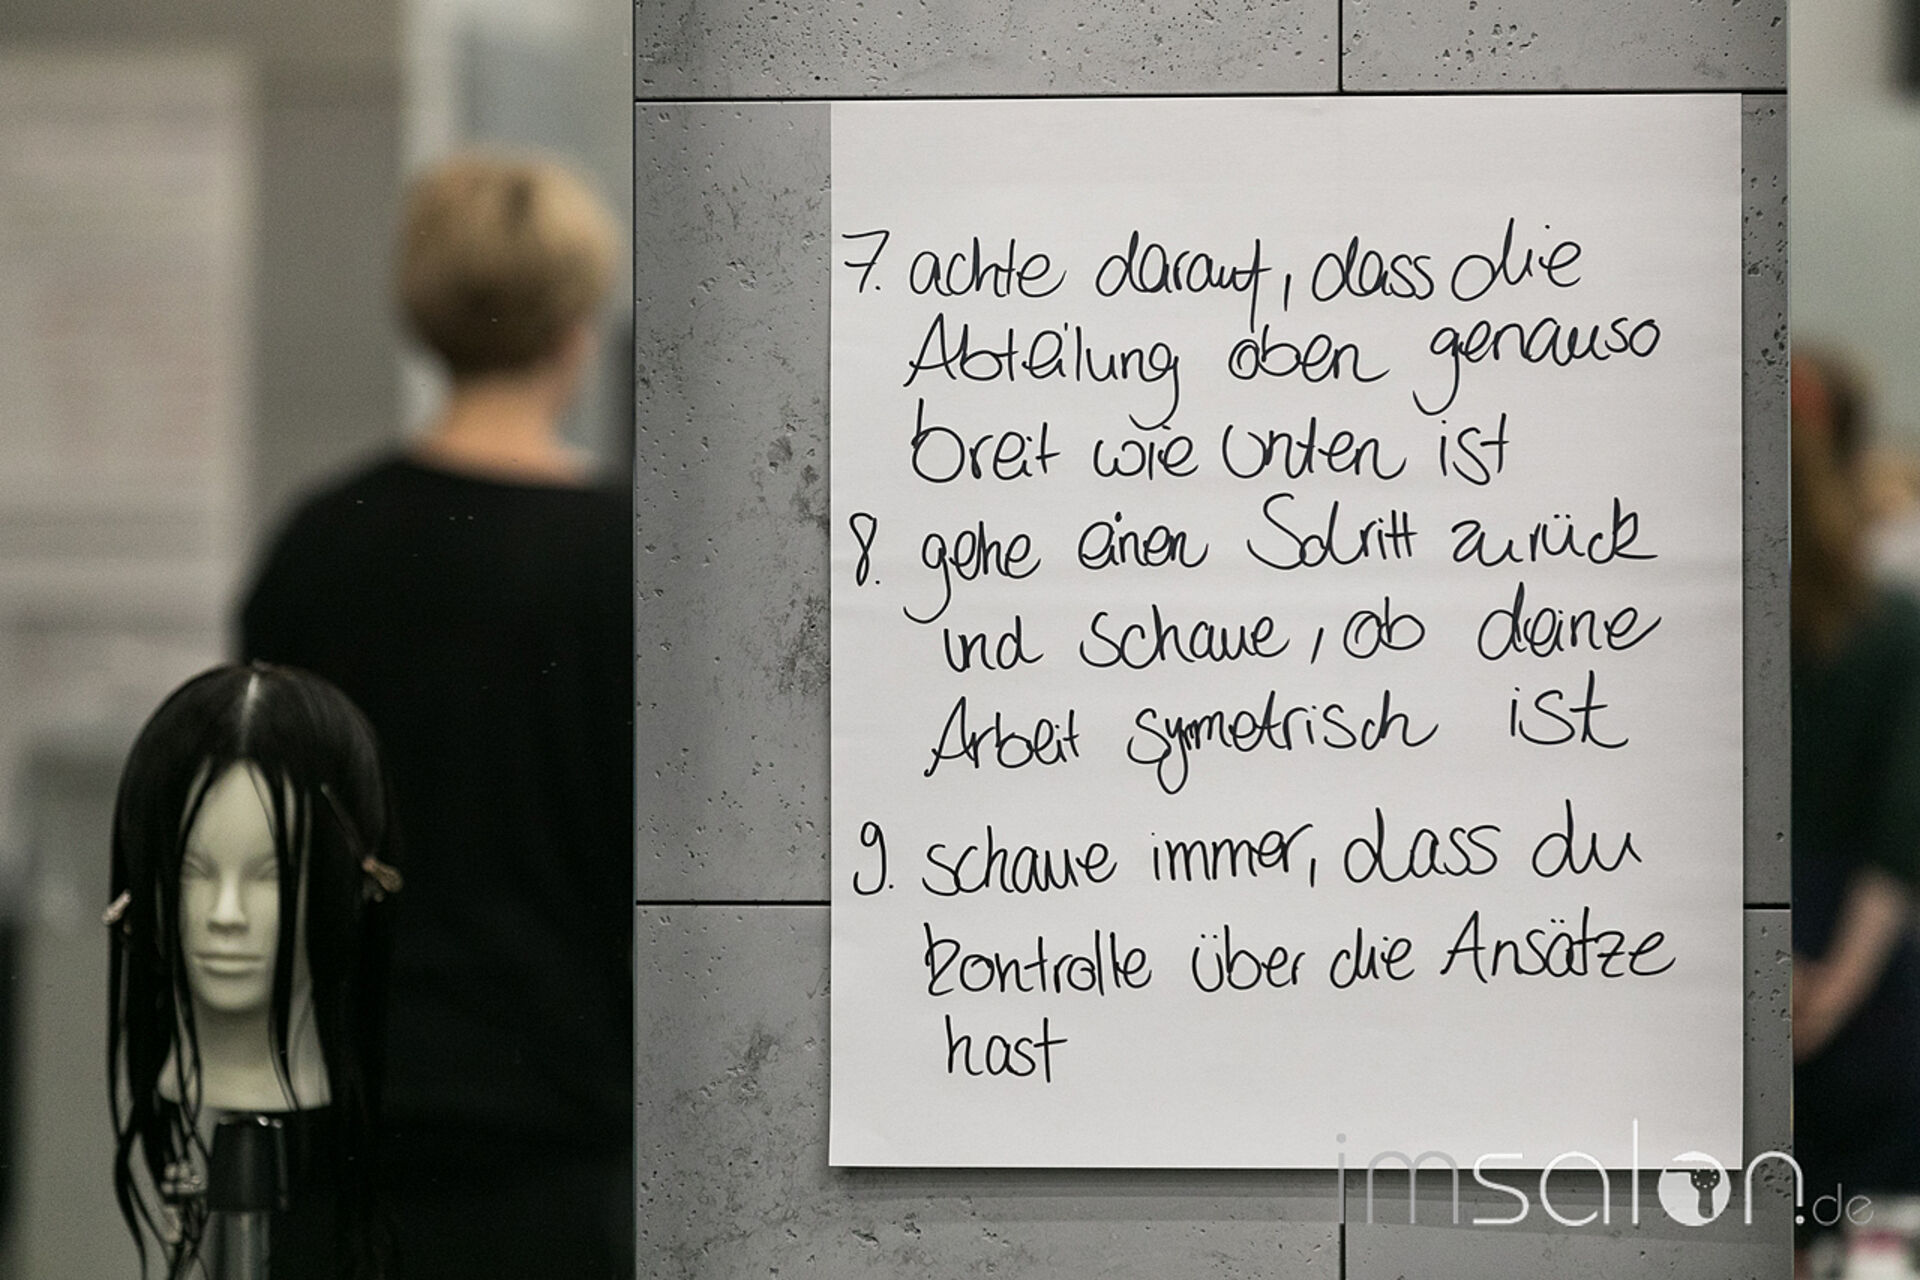 7. achte darauf, dass die
Abteilung oben genauso
breit wie unten ist
8. gehe einen Schritt zurück
und schaue, ob deine
Arbeit symetrisch ist
9. schaue immer, dass du
kontrolle über die Ansätze
hast
imsalon.de